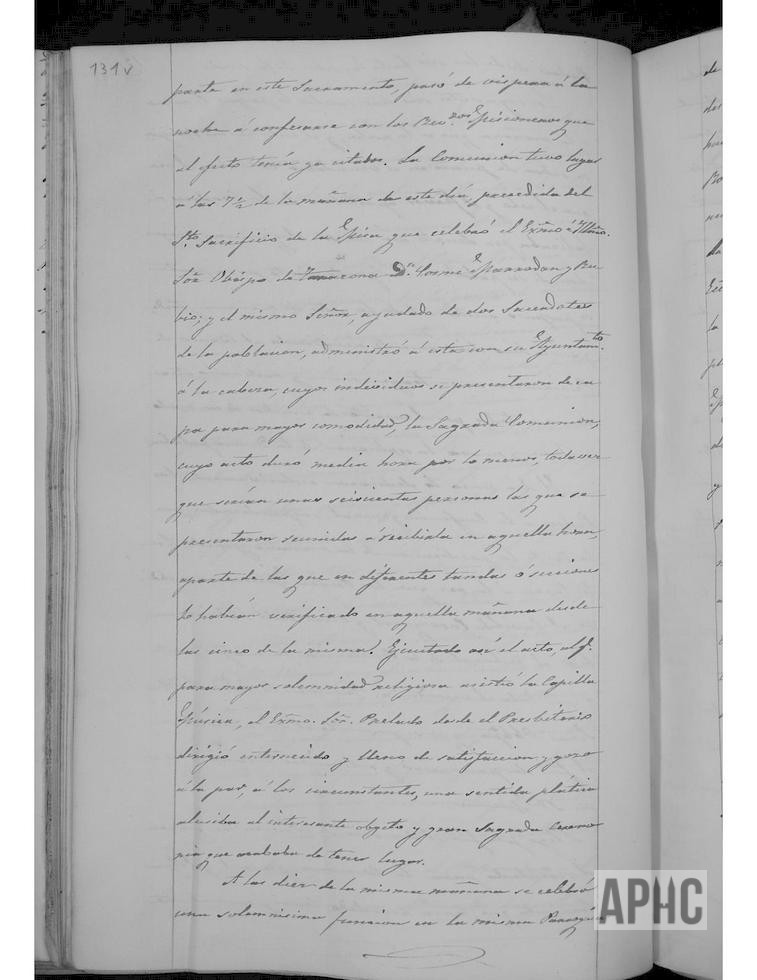 131v
parte en este Sacramento, pasó de víspera á la
noche á confesarse con los Rev.dos Misioneros que
al efecto tenía ya citados. La Comunion tuvo lugar
á las 7 ½ de la mañana de este dia, precedida del
Sto. Sacrificio de la Misa que celebró el Exmo é Illmo.
Sõr Obispo de Tarazona Dn. Cosme Marrodan y Ru-
bio; y el mismo Señor, ayudado de dos Sacerdotes
de la poblacion, administró á esta con su Ayuntam.to
á la cabeza, cuyos individuos se presentaron de ca-
pa para mayor comodidad, la Sagrada Comunion,
cuyo acto duró media hora por lo menos, toda vez
que serían unas seiscientas personas las que se
presentaron reunidas á recibirla en aquella hora,
aparte de las que en diferentes tandas ó secciones
lo habían verificado en aquella mañana desde
las cinco de la misma. Ejecutado así el acto, al q.
para mayor solemnidad religiosa asistió la Capilla
Música, el Exmo. Sõr. Prelado desde el Presbiterio
dirigió enternecido y lleno de satisfaccion y gozo
á la par, á los circunstantes, una sentida plática
alusiva al interesante objeto y gran Sagrada Ceremo-
nia que acababa de tener lugar.
A las diez de la misma mañana se celebró
una solemnisima funcion en la misma Parroquia
APHC